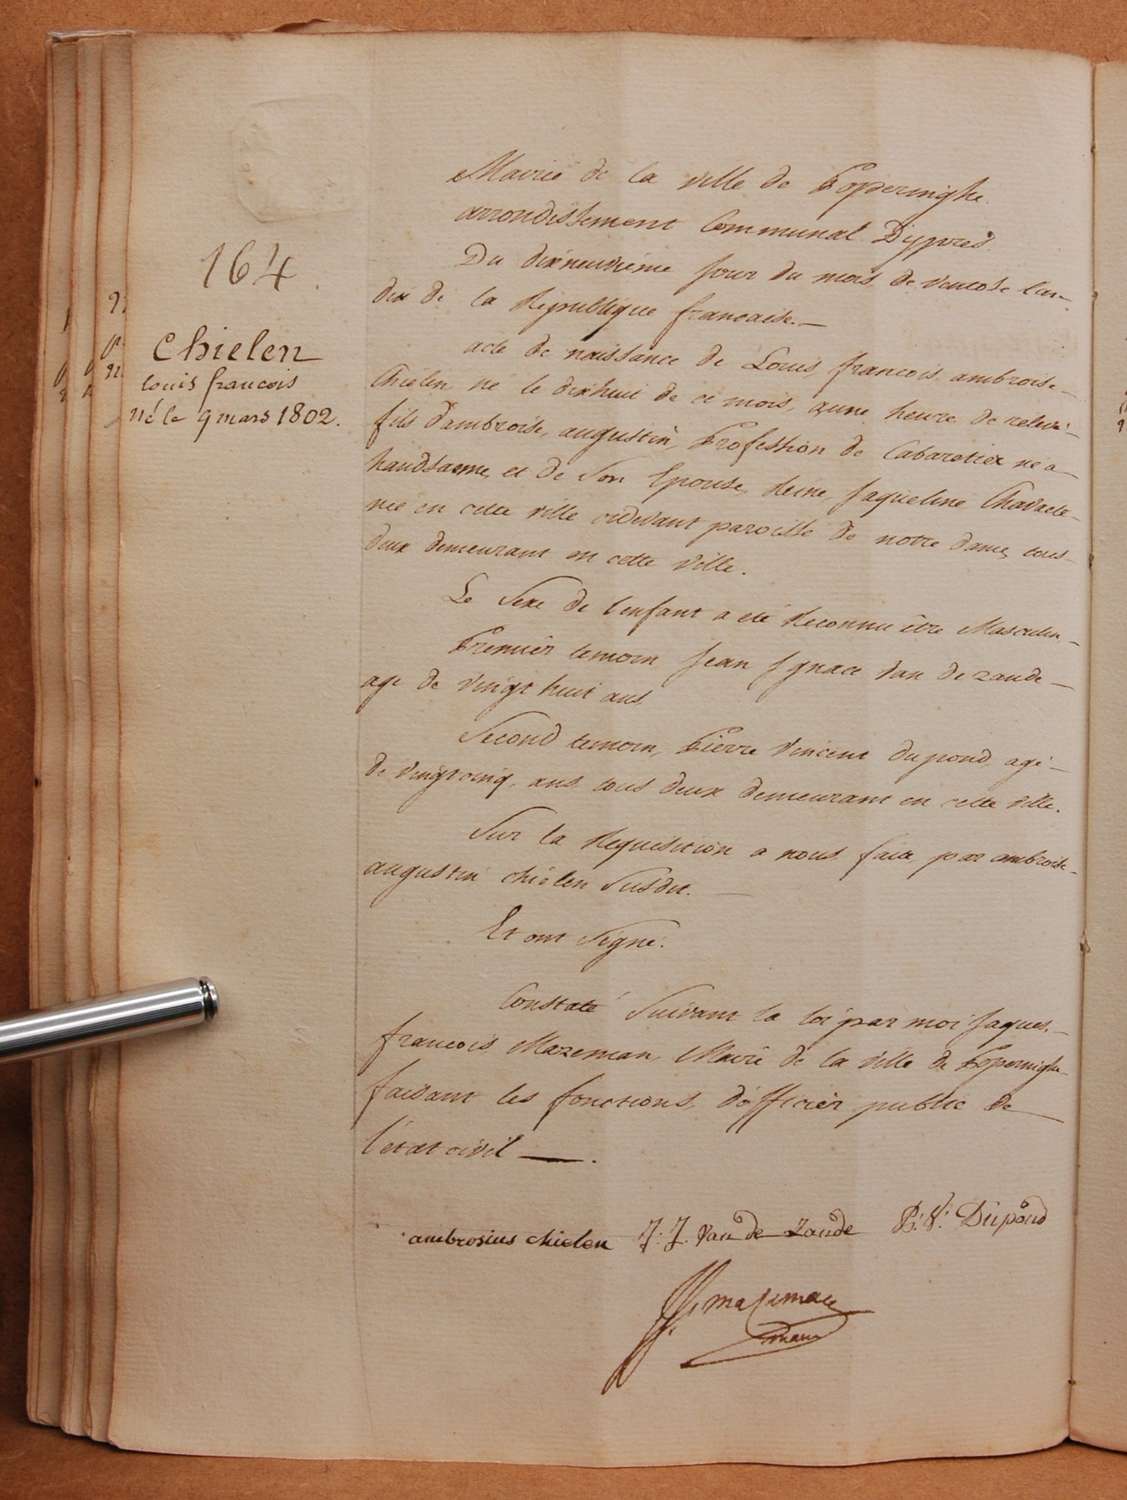 164.
Chielen
louis francois
né le 9 mars 1802.
Mairie de la ville de Poperinghe
arrondissement Communal D'ypres
Du dixneuvième jour du mois de ventose l'an
dix de la République francaise.—
acte de naissance de Louis francois ambroise
Chielen né le dixhuit de ce mois, a une heure de relevé
fils d'ambroise, augustin, Profession de Cabaretier né a
handsaeme, et de Son Epouse, Reine Jaqueline
née en cette ville cidevant paroisse de notre dame, tous
deux demeurant en cette ville.
Le Sexe de l'enfant a été Reconnu être Masculin
Premier temoin Jean Ignace Van de zande —
agé de vingt huit ans
Second temoin, Pierre Vincent dupond agé —
de vingtcinq, ans tous deux demeurant en cette ville.
Sur la Requisition a nous fait par ambroise
augustin chielen Susdit. —
Et ont Signé.
Constaté Suivant la loi par moi Jaques
francois Mazeman Maire de la ville de Poperinghe
faisant les fonctions d'officier public de
l'état civil —.
ambrosius chielen J: J. Van de Zande P: V: Dupond